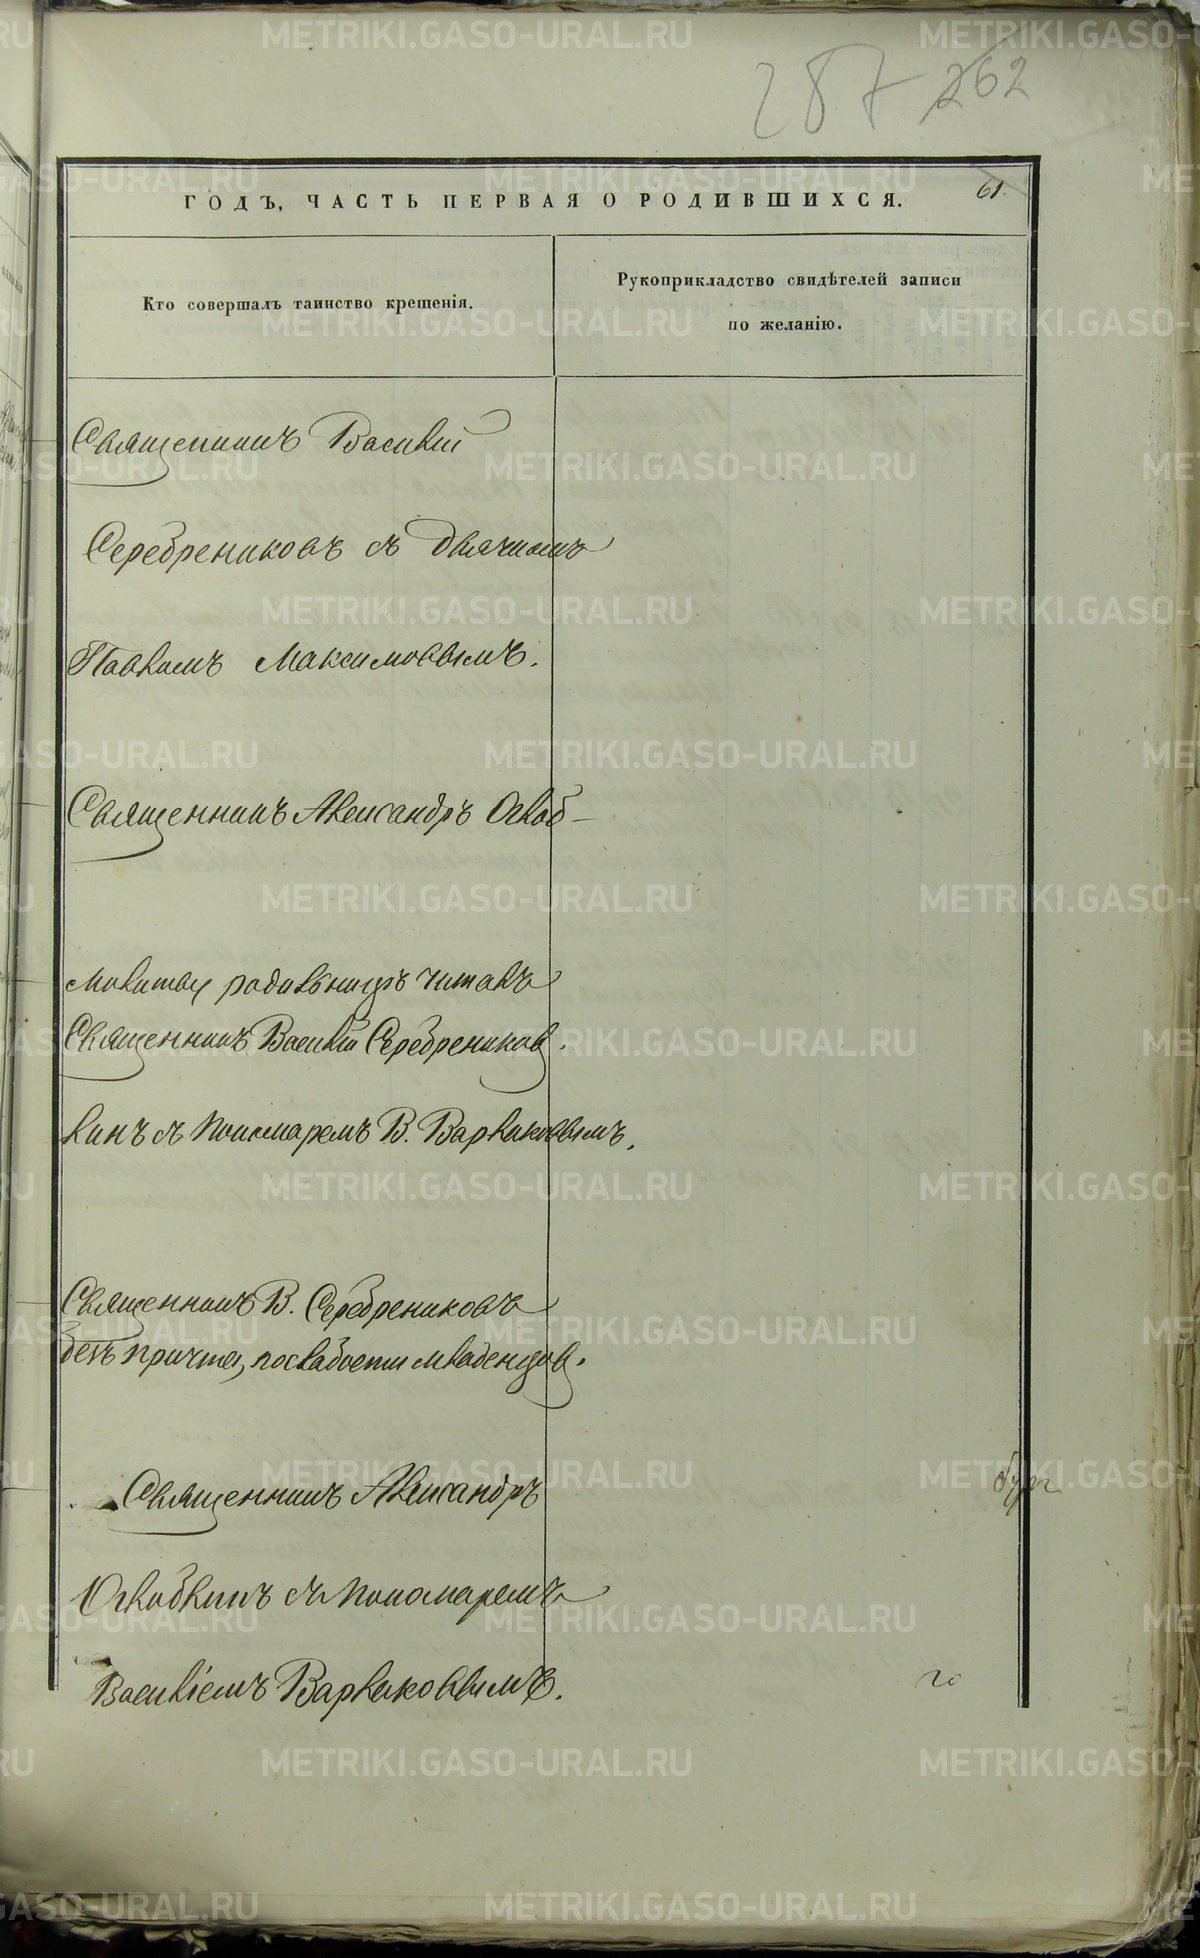 287 262
ГОДЪ, ЧАСТЬ ПЕРВАЯ О РОДИВШИХСЯ.
61.
Кто совершалъ таинство крещенія.
Рукоприкладство свидѣтелей записи
по желанію.
Священникъ Василій
Серебрениковъ съ дьячкомъ
Павломъ Максимовымъ.
Священникъ Александръ Оглоб-
молитвы родильницѣ читалъ
Священникъ Василій Серебрениковъ.
линъ съ пономаремъ В. Варлаковымъ.
Священникъ В. Серебрениковъ
безъ причта, по слабости младенцовъ.
Священникъ Александръ
Оглоблинъ съ пономаремъ
Василіемъ Варлаковымъ.
METRIKI.GASO-URAL.RU